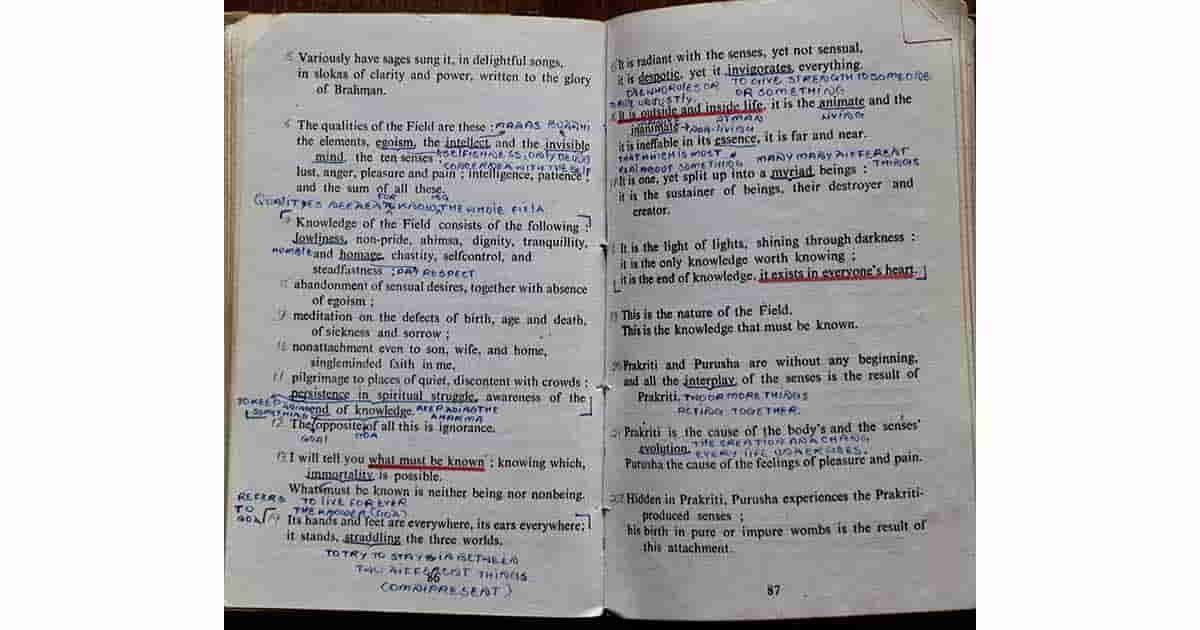 5 Variously have sages sung it, in delightful songs,
in slokas of clarity and power, written to the glory
of Brahman.
6 The qualities of the Field are these :
the elements, egoism, the intellect and the invisible
mind, the ten senses
lust, anger, pleasure and pain ; intelligence, patience ;
and the sum of all these.
QUALITIES NEEDED FOR KNOWING THE WHOLE FIELD
7 Knowledge of the Field consists of the following :
lowliness, non-pride, ahimsa, dignity, tranquillity,
HUMBLE and homage, chastity, selfcontrol, and
steadfastness ; PAY RESPECT
abandonment of sensual desires, together with absence
of egoism ;
9 meditation on the defects of birth, age and death,
of sickness and sorrow ;
10 nonattachment even to son, wife, and home,
singleminded faith in me,
11 pilgrimage to places of quiet, discontent with crowds ;
persistence in spiritual struggle, awareness of the
TO KEEP DOING SOMETHING
end of knowledge.
12 The opposite of all this is ignorance.
GOAL
13 I will tell you what must be known ; knowing which,
immortality is possible.
What must be known is neither being nor nonbeing.
TO LIVE FOR EVER
REFERS TO GOD
THE KNOWER (GOD)
14 Its hands and feet are everywhere, its ears everywhere;
it stands, straddling the three worlds,
TO TRY TO STAY IN BETWEEN
TWO DIFFERENT THINGS
86
(OMNIPRESENT)
It is radiant with the senses, yet not sensual,
it is despotic, yet it invigorates, everything.
ONE WHO RULES OR
TO GIVE STRENGTH TO SOMEONE
OR SOMETHING
It is outside and inside life, it is the animate and the
ATMAN
LIVING
inanimate → NON-LIVING
it is ineffable in its essence, it is far and near.
THAT WHICH IS MOST
REAL ABOUT SOMETHING
MANY MANY DIFFERENT
THINGS
It is one, yet split up into a myriad beings :
it is the sustainer of beings, their destroyer and
creator.
It is the light of lights, shining through darkness :
it is the only knowledge worth knowing ;
it is the end of knowledge, it exists in everyone's heart.
This is the nature of the Field.
This is the knowledge that must be known.
20 Prakriti and Purusha are without any beginning,
and all the interplay of the senses is the result of
Prakriti. TWO OR MORE THINGS
ACTING TOGETHER.
21 Prakriti is the cause of the body's and the senses'
evolution, THE CREATION AND CHANG
EVERY LIFE UNDERGOES.
Purusha the cause of the feelings of pleasure and pain.
22 Hidden in Prakriti, Purusha experiences the Prakriti-
produced senses ;
his birth in pure or impure wombs is the result of
this attachment.
87